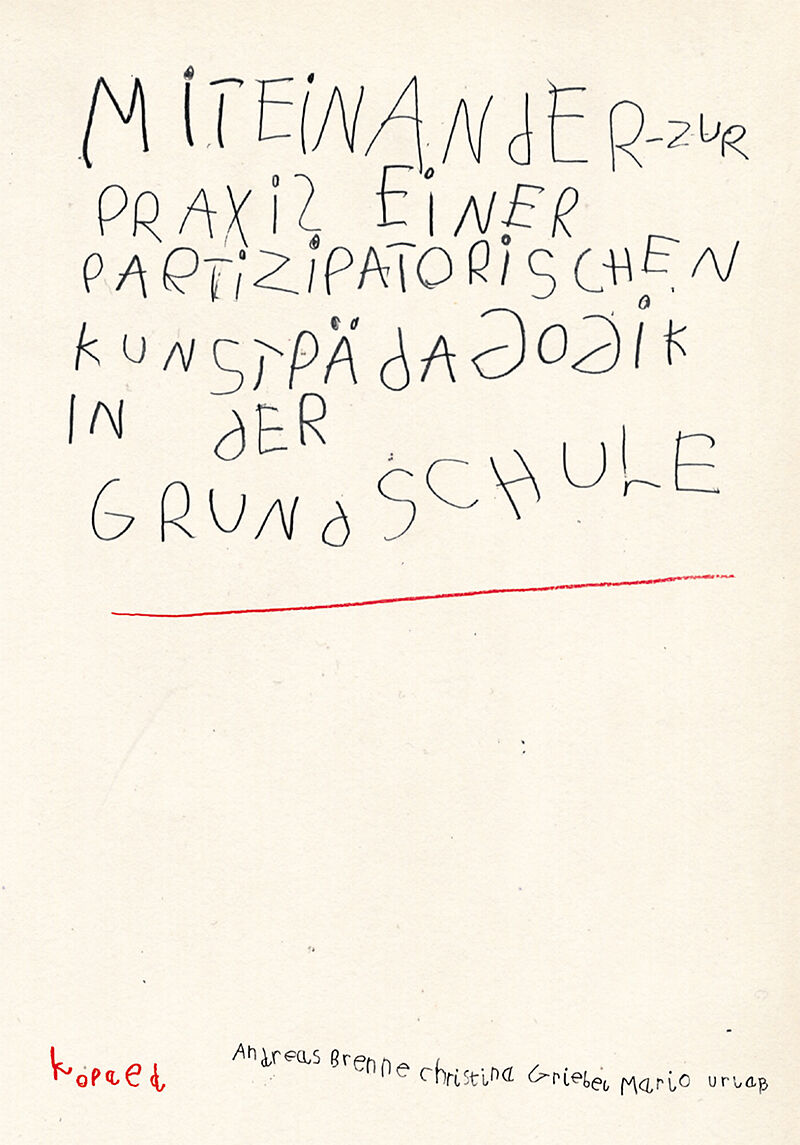 MiTEiNANdER-ZUR
PRAXiS EiNER
PARTiZiPATORiSCHEN
KUNSTPÄdAGOGiK
IN dER
GRUNdSCHULE
kopaed
Andreas Brenne christina Griebel Mario urlaß